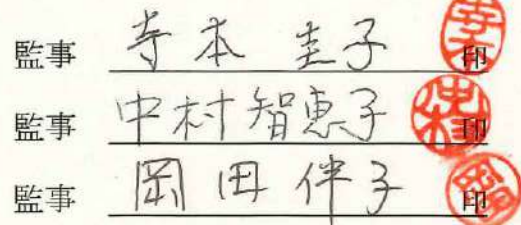 監事 寺本 圭子 印
監事 中村智恵子 印
監事 岡田伴子 印